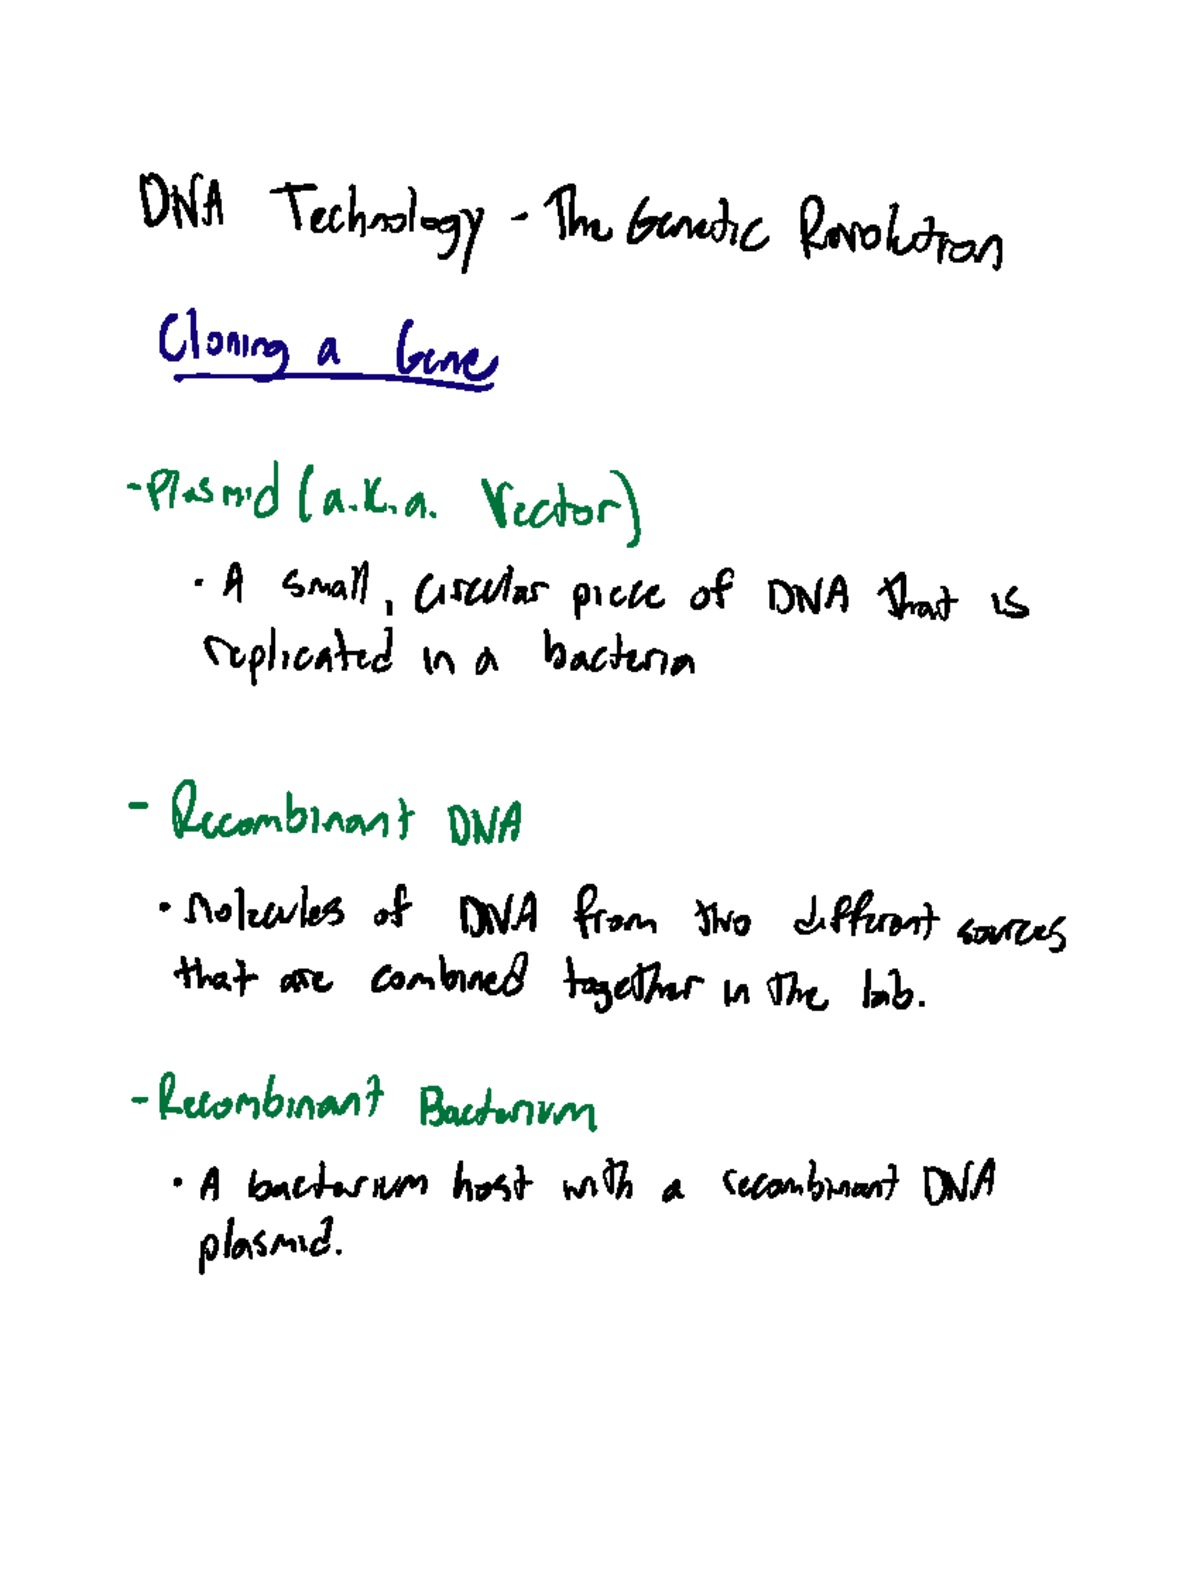 DNA Technology - The Genetic Revolution
Cloning a Gene
- Plasmid (a.k.a. Vector)
• A small, circular piece of DNA that is
replicated in a bacteria
- Recombinant DNA
• Molecules of DNA from two different sources
that are combined together in the lab.
- Recombinant Bacterium
• A bacterium host with a recombinant DNA
plasmid.